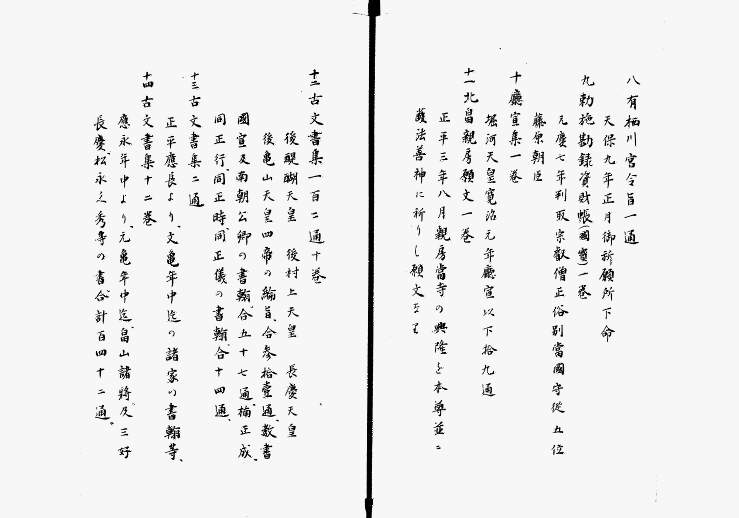 八有栖川宮令旨一通
天保九年正月御祈願所下命
九勅施勘録資財帳(國寶)一巻
元慶七年判取宗叡僧正俗別當國守從五位
藤原朝臣
十廳宣集一巻
堀河天皇寛治元年廳宣以下拾九通
十一北畠親房願文一巻
正平三年八月親房當寺の興隆を本尊並ニ
護法善神に祈りし願文なり
十二古文書集一百二通十巻
後醍醐天皇 後村上天皇 長慶天皇
後亀山天皇四帝の綸旨、合参拾壹通、教書
國宣及南朝公卿の書翰、合五十七通、楠正成、
同正行、同正時、同正儀の書翰、合十四通、
十三古文書集二通
正平應長より、文亀年中迄の諸家の書翰等、
十四古文書集十二巻
應永年中より、元亀年中迄、畠山諸将、及三好
長慶、松永久秀等の書合計百四十二通。